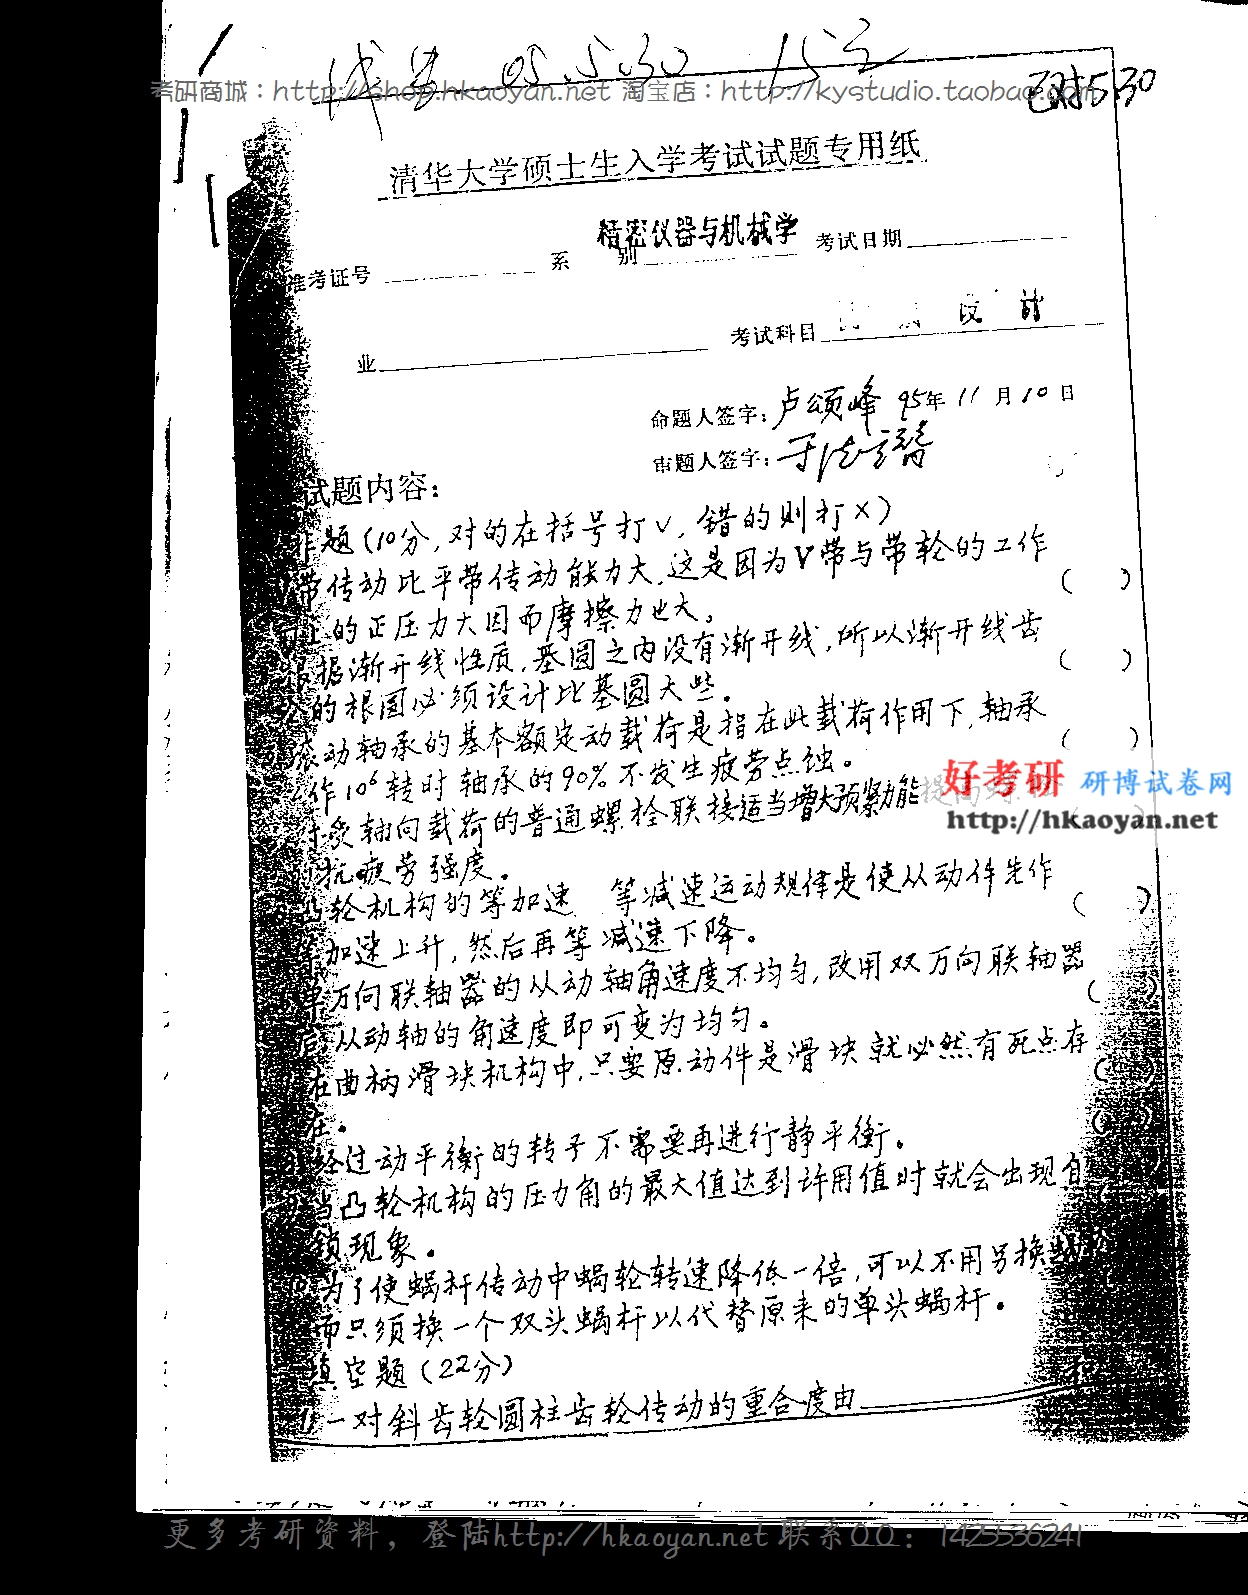 05.5.30
考研商城：http://shop.hkaoyan.net 淘宝店：http://kystudio.taobao.com
5.30
清华大学硕士生入学考试试题专用纸
准考证号 系 别 精密仪器与机械学 考试日期
专 业 考试科目 设 计
命题人签字：卢颂峰 95年11月10日
审题人签字：
试题内容：
题（10分，对的在括号打√，错的则打×）
带传动比平带传动能力大，这是因为V带与带轮的工作
上的正压力大因而摩擦力也大。（ ）
根据渐开线性质，基圆之内没有渐开线，所以渐开线齿
的根圆必须设计比基圆大些。（ ）
滚动轴承的基本额定动载荷是指在此载荷作用下，轴承
作10⁶转时轴承的90%不发生疲劳点蚀。（ ）
好考研 研博试卷网
http://hkaoyan.net
对受轴向载荷的普通螺栓联接适当增大预紧力能提高
抗疲劳强度。
凸轮机构的等加速 等减速运动规律是使从动件先作
加速上升，然后再等减速下降。（ ）
单万向联轴器的从动轴角速度不均匀，改用双万向联轴器
后从动轴的角速度即可变为均匀。（ ）
在曲柄滑块机构中，只要原动件是滑块就必然有死点存
在。（ ）
经过动平衡的转子不需要再进行静平衡。（ ）
当凸轮机构的压力角的最大值达到许用值时就会出现自
锁现象。
为了使蜗杆传动中蜗轮转速降低一倍，可以不用另换
而只须换一个双头蜗杆以代替原来的单头蜗杆。
填空题（22分）
一对斜齿轮圆柱齿轮传动的重合度由
更多考研资料，登陆http://hkaoyan.net 联系QQ：1425536241